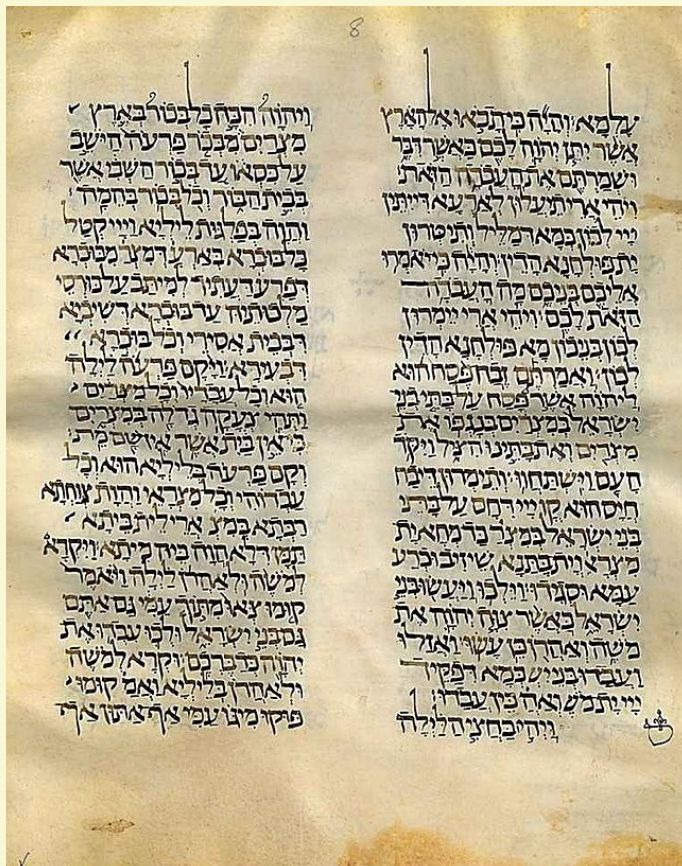 8
עלמא׃ והיה כי תבאו אל הארץ
אשר יתן יהוה לכם כאשר דבר
ושמרתם את העבדה הזאת׃
ויהי ארי תיעלון לארעא דייתין
ייי לכון כמא דמליל ותיטרון
ית פולחנא הדין׃ והיה כי יאמרו
אליכם בניכם מה העבדה
הזאת לכם׃ ויהי ארי יימרון
לכון בניכון מא פולחנא הדין
לכון׃ ואמרתם זבח פסח הוא
ליהוה אשר פסח על בתי בני
ישראל במצרים בנגפו את
מצרים ואת בתינו הציל ויקד
העם וישתחוו׃ ותימרון דיבח
חייס הוא קו ייי דרחם על בתי
בני ישראל במצר כד מחא ית
מצראי וית בתנא שיזיב וכרע
עמא וסגידו׃ וילכו ויעשו בני
ישראל כאשר צוה יהוה את
משה ואהרן כן עשו׃ ואזלו
ועבדו בני יש כמא דפקיד
ייי ית מש ואה כין עבדו׃
ויהי בחצי הלילה
ויהוה הכה כל בכור בארץ
מצרים מבכר פרעה הישב
על כסאו עד בכור השבי אשר
בבית הבור וכל בכור בהמה׃
והוה בפלגות ליליא וייי קטל
כל בוכרא בארע דמצר מבוכרא
דפרעה דעתיד למיתב על כורסי
מלכותיה עד בוכרא דשיביא
דבבית אסירי וכל בוכרא
דבעירא׃ ויקם פרעה לילה
הוא וכל עבדיו וכל מצרים
ותהי צעקה גדלה במצרים
כי אין בית אשר אין שם מת׃
וקם פרעה בליליא הוא וכל
עבדוהי וכל מצראי והות צוחתא
רבתא במצ ארי לית ביתא
תמן דלא הוה ביה מיתא׃ ויקרא
למשה ולאהרן לילה ויאמר
קומו צאו מתוך עמי גם אתם
גם בני ישראל ולכו עבדו את
יהוה כדברכם׃ וקרא למשה
ולאהרן בליליא ואמ קומו
פוקו מיגו עמי אף אתון אף